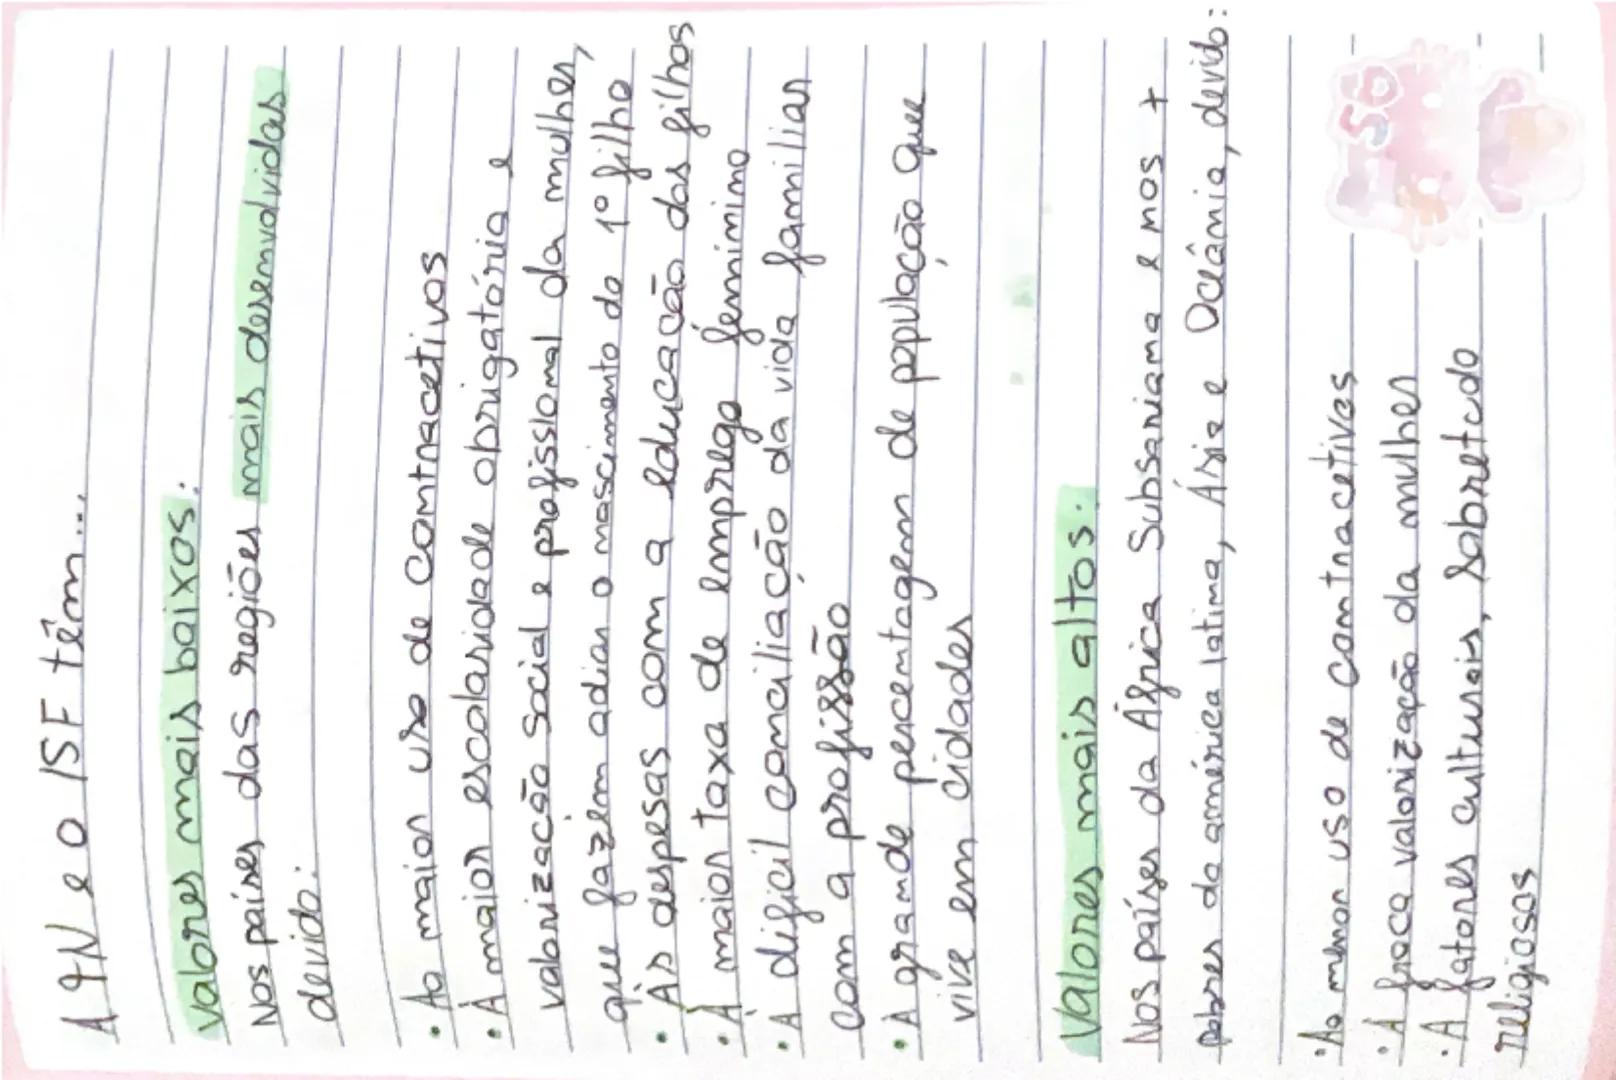 A TN e o ISF têm...
Valores mais baixos:
Nos países das regiões mais desenvolvidas
devido:
• Ao maior uso de contracetivos
• À maior escolaridade obrigatória e
valorização social e profissional da mulher,
que fazem adiar o nascimento do 1º filho
• Às despesas com a educação dos filhos
• À maior taxa de emprego feminino
• À difícil conciliação da vida familiar
com a profissão
• À grande percentagem de população que
vive em cidades
Valores mais altos:
Nos países da África Subsariana e nos +
pobres da américa latina, Ásia e Oceânia, devido:
• Ao menor uso de contracetivos
• À fraca valorização da mulher
• A fatores culturais, sobretudo
religiosos